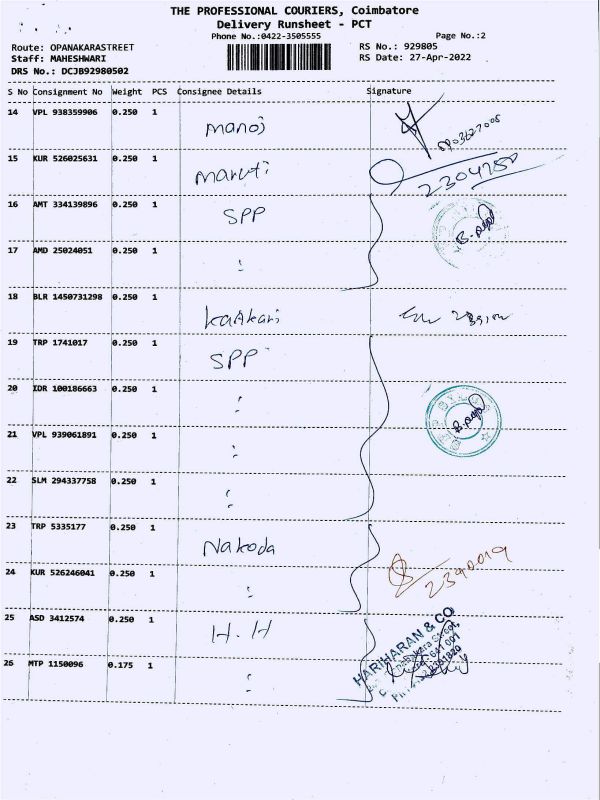 THE PROFESSIONAL COURIERS, Coimbatore
Delivery Runsheet - PCT
Phone No.:0422-3505555 Page No.:2
Route: OPANAKARASTREET RS No.: 929805
Staff: MAHESHWARI RS Date: 27-Apr-2022
DRS No.: DCJB92980502
S No Consignment No Weight PCS Consignee Details Signature
14 VPL 938359906 0.250 1 manoj
15 KUR 526025631 0.250 1 maruti
16 AMT 334139896 0.250 1 SPP
17 AMD 25024051 0.250 1 "
18 BLR 1450731298 0.250 1
19 TRP 1741017 0.250 1 SPP
20 IDR 100186663 0.250 1 "
21 VPL 939061891 0.250 1 "
22 SLM 294337758 0.250 1 "
23 TRP 5335177 0.250 1 Nakoda
24 KUR 526246041 0.250 1 " 2390019
25 ASD 3412574 0.250 1 H.H
HARIHARAN & CO
26 MTP 1150096 0.175 1 "